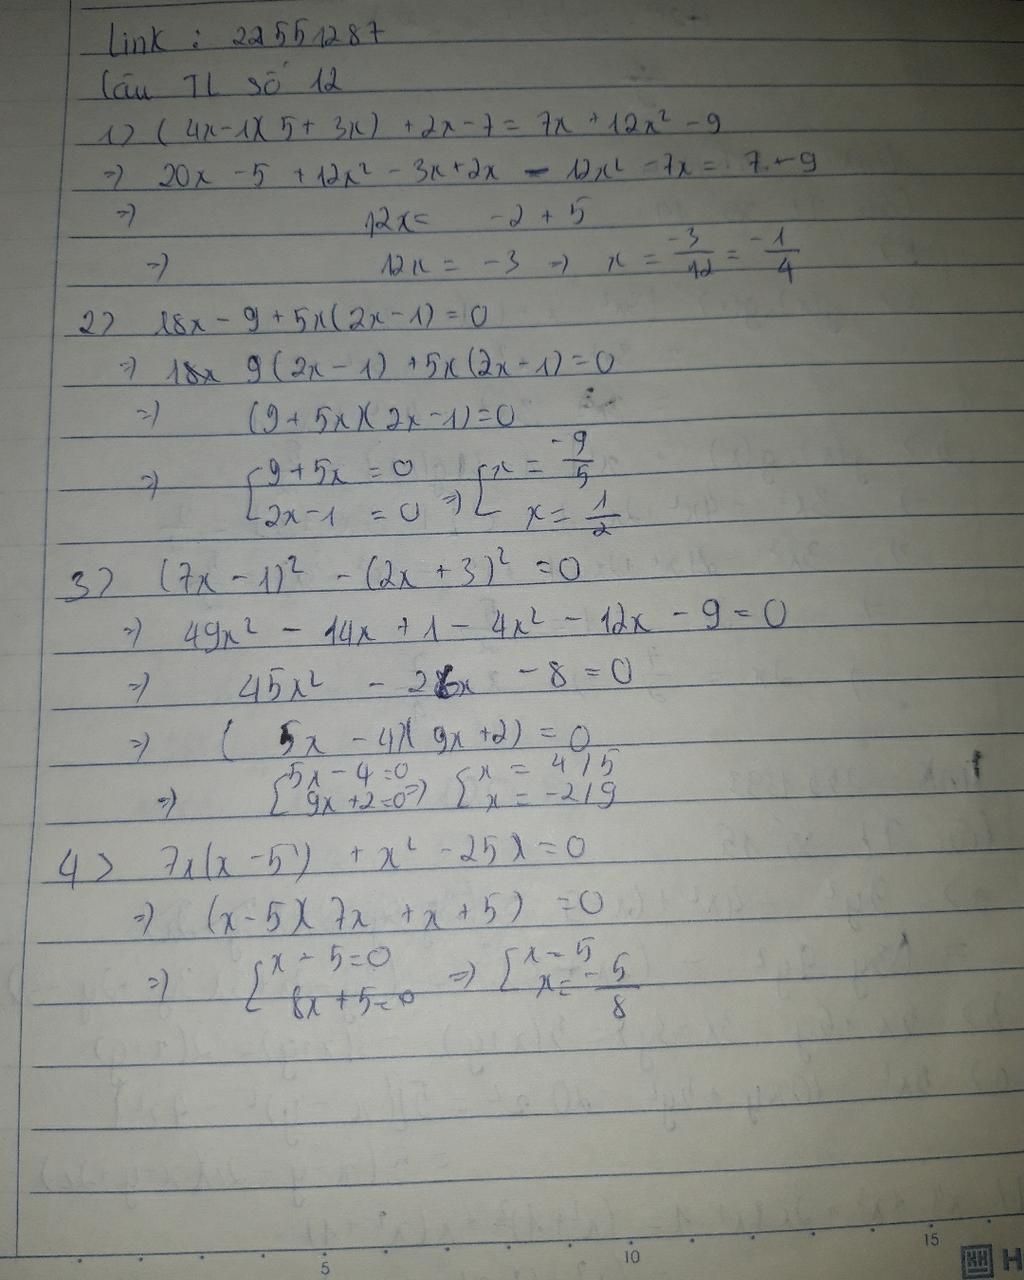 Link : 22551287
Câu TL số 12
1> (4x-1)(5+3x) +2x-7= 7x+12x² -9
=> 20x -5 +12x² -3x+2x - 12x² -7x= 7-9
=> 12x= -2+5
=> 12x = -3 => x = -3/12 = -1/4
2> 18x - 9 + 5x(2x-1)=0
=> 9(2x-1) +5x(2x-1)=0
=> (9+5x)(2x-1)=0
=> [9+5x =0 => [x = -9/5
2x-1 =0 x = 1/2
3> (7x-1)² -(2x+3)² =0
=> 49x² - 14x +1 - 4x² - 12x - 9 = 0
=> 45x² - 26x - 8 = 0
=> (5x - 4)(9x+2) = 0
=> [5x-4=0 => [x = 4/5
9x+2=0 x = -2/9
4> 7x(x-5) + x² -25 =0
=> (x-5)(7x+x+5) =0
=> [x-5=0 => [x=5
8x+5=0 x=-5/8
5 10 15